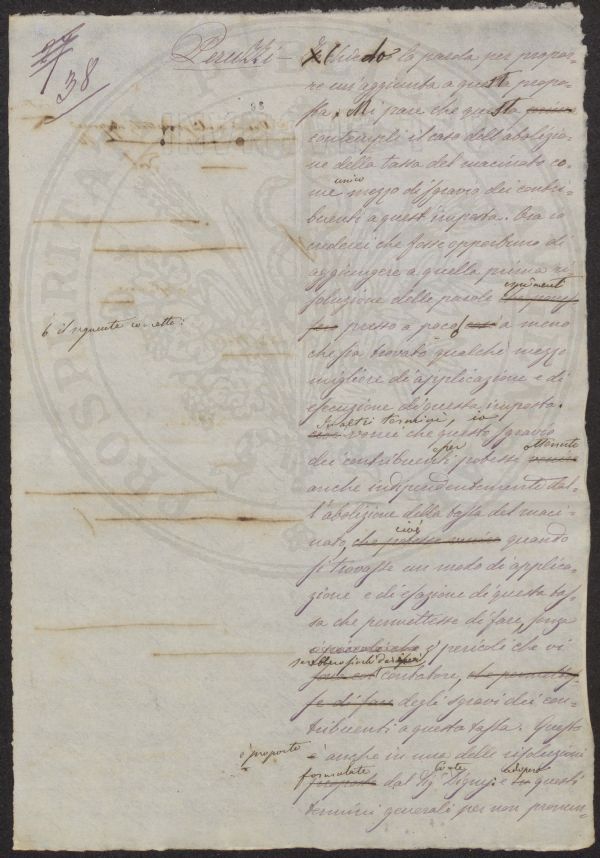 38
Peruzzi - Chiedo la parola per propor=
re un'aggiunta a questa propo=
sta. Mi pare che questa
contempli il caso dell'abolizio=
ne della tassa del macinato co=
me unico mezzo di sgravio dei contri=
buenti a quest'imposta. Ora io
crederei che fosse opportuno di
aggiungere a quella prima ri
soluzione delle parole esprimenti
è il seguente concetto:
presso a poco a meno
che sia trovato qualche mezzo
migliore di applicazione e di
esecuzione di questa imposta.
In altri termini, io
vorrei che questo sgravio
dei contribuenti potesse ottenuto
anche indipendentemente dal=
l'abolizione della tassa del maci=
nato, cioè quando
si trovasse un modo di applica=
zione e di esazione di questa tas=
sa che permettesse di fare, senza
i pericoli che vi
contatore,
degli sgravi dei con=
tribuenti a questa tassa. Questo
è proposto
è anche in una delle risoluzioni
formulate dal Sig. Conte Digny e in questi
termini generali per non pronun=